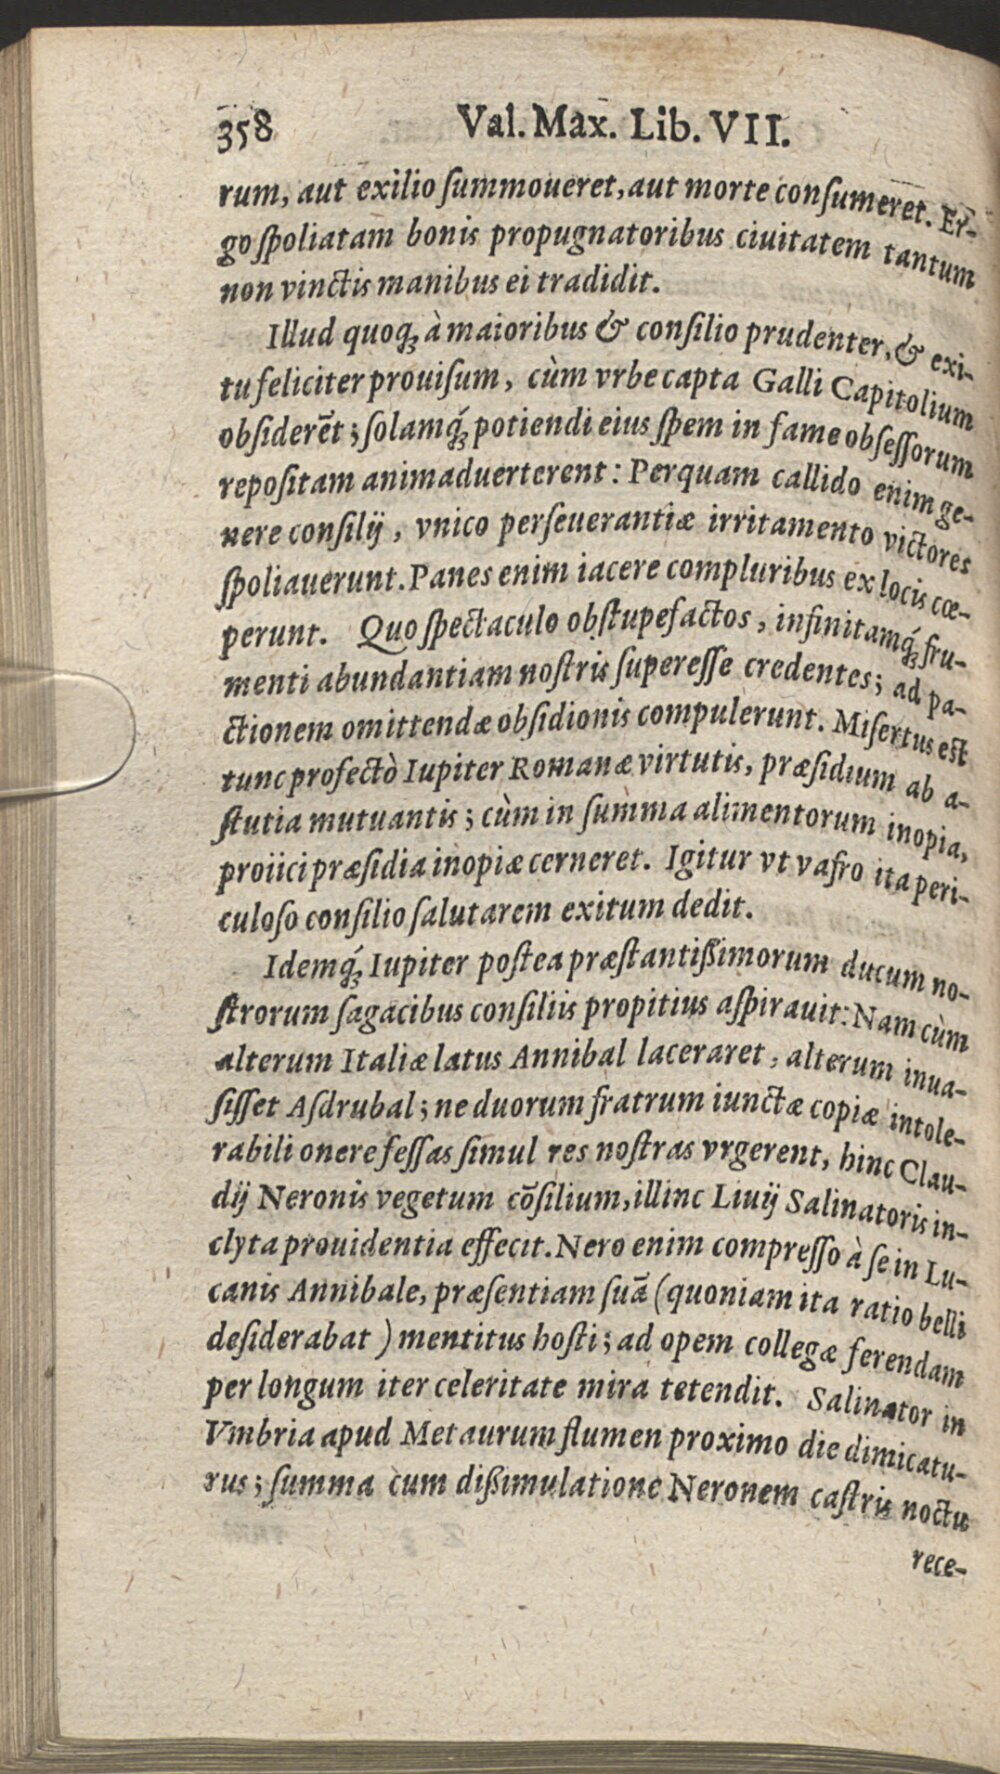 358 Val. Max. Lib. VII.
rum, aut exilio ſummoueret, aut morte conſumeret. Er-
go ſpoliatam bonis propugnatoribus ciuitatem tantum
non vinctis manibus ei tradidit.
Illud quoq́ꝫ à maioribus & conſilio prudenter, & exi-
tu feliciter prouiſum, cùm vrbe capta Galli Capitolium
obſiderēt; ſolamq́ꝫ potiendi eius ſpem in fame obſeſſorum
repoſitam animaduerterent: Perquam callido enim ge-
nere conſilij, vnico perſeuerantiæ irritamento victores
ſpoliauerunt. Panes enim iacere compluribus ex locis cœ-
perunt. Quo ſpectaculo obſtupefactos, infinitamq́ꝫ fru-
menti abundantiam noſtris ſupereſſe credentes; ad pa-
ctionem omittendæ obſidionis compulerunt. Miſertus eſt
tunc profectò Iupiter Romanæ virtutis, præſidium ab a-
ſtutia mutuantis; cùm in ſumma alimentorum inopia,
proiici præſidia inopiæ cerneret. Igitur vt vafro ita peri-
culoſo conſilio ſalutarem exitum dedit.
Idemq́ꝫ Iupiter poſtea præſtantißimorum ducum no-
ſtrorum ſagacibus conſiliis propitius aſpirauit: Nam cùm
alterum Italiæ latus Annibal laceraret, alterum inua-
ſiſſet Aſdrubal; ne duorum fratrum iunctæ copiæ intole-
rabili onere feſſas ſimul res noſtras vrgerent, hinc Clau-
dij Neronis vegetum cōſilium, illinc Liuij Salinatoris in-
clyta prouidentia effecit. Nero enim compreſſo à ſe in Lu-
canis Annibale, præſentiam ſuā (quoniam ita ratio belli
deſiderabat) mentitus hoſti; ad opem collegæ ferendam
per longum iter celeritate mira tetendit. Salinator in
Vmbria apud Metaurum flumen proximo die dimicatu-
rus; ſumma cum dißimulatione Neronem caſtris noctu
rece-